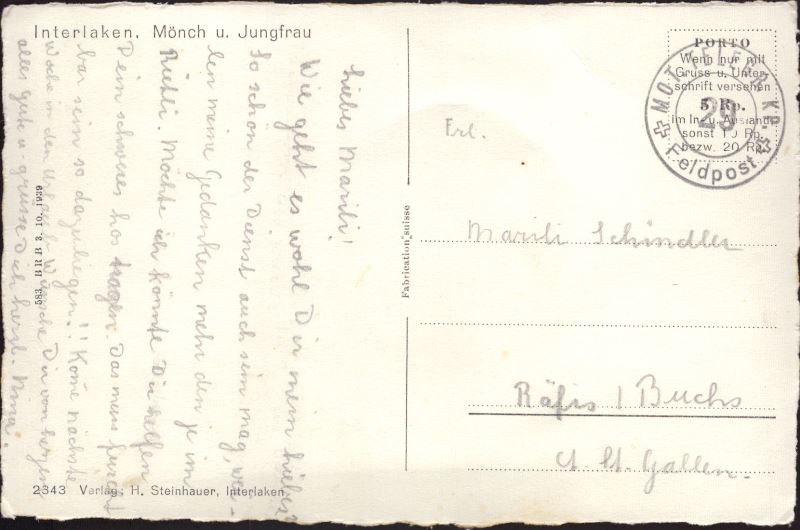 Interlaken, Mönch u. Jungfrau
Liebes Marili!
Wie geht es wohl Dir mein liebes?
So schön der Dienst auch sein mag, wei-
len meine Gedanken mehr den je im
Rüteli. Möchte ich könnte Dir helfen
Dein schweres los tragen. Das muss
bar sein so dazuliegen!! Kome nächste
Woche in den Urlaub. Wünsche Dir von herzen
alles gute u. grüsse Dich herzl. Nina.
583. BRB 3. 10. 1939
2343 Verlag: H. Steinhauer, Interlaken
Fabrication suisse
PORTO
Wenn nur mit
Gruss u. Unter-
schrift versehen
5 Rp.
im In- u. Auslande
sonst 10 Rp.
bezw. 20 Rp.
MOT. TELEGR. KP.
23
Feldpost
Frl.
Marili Schindler
Räfis / Buchs
Ct. St. Gallen.